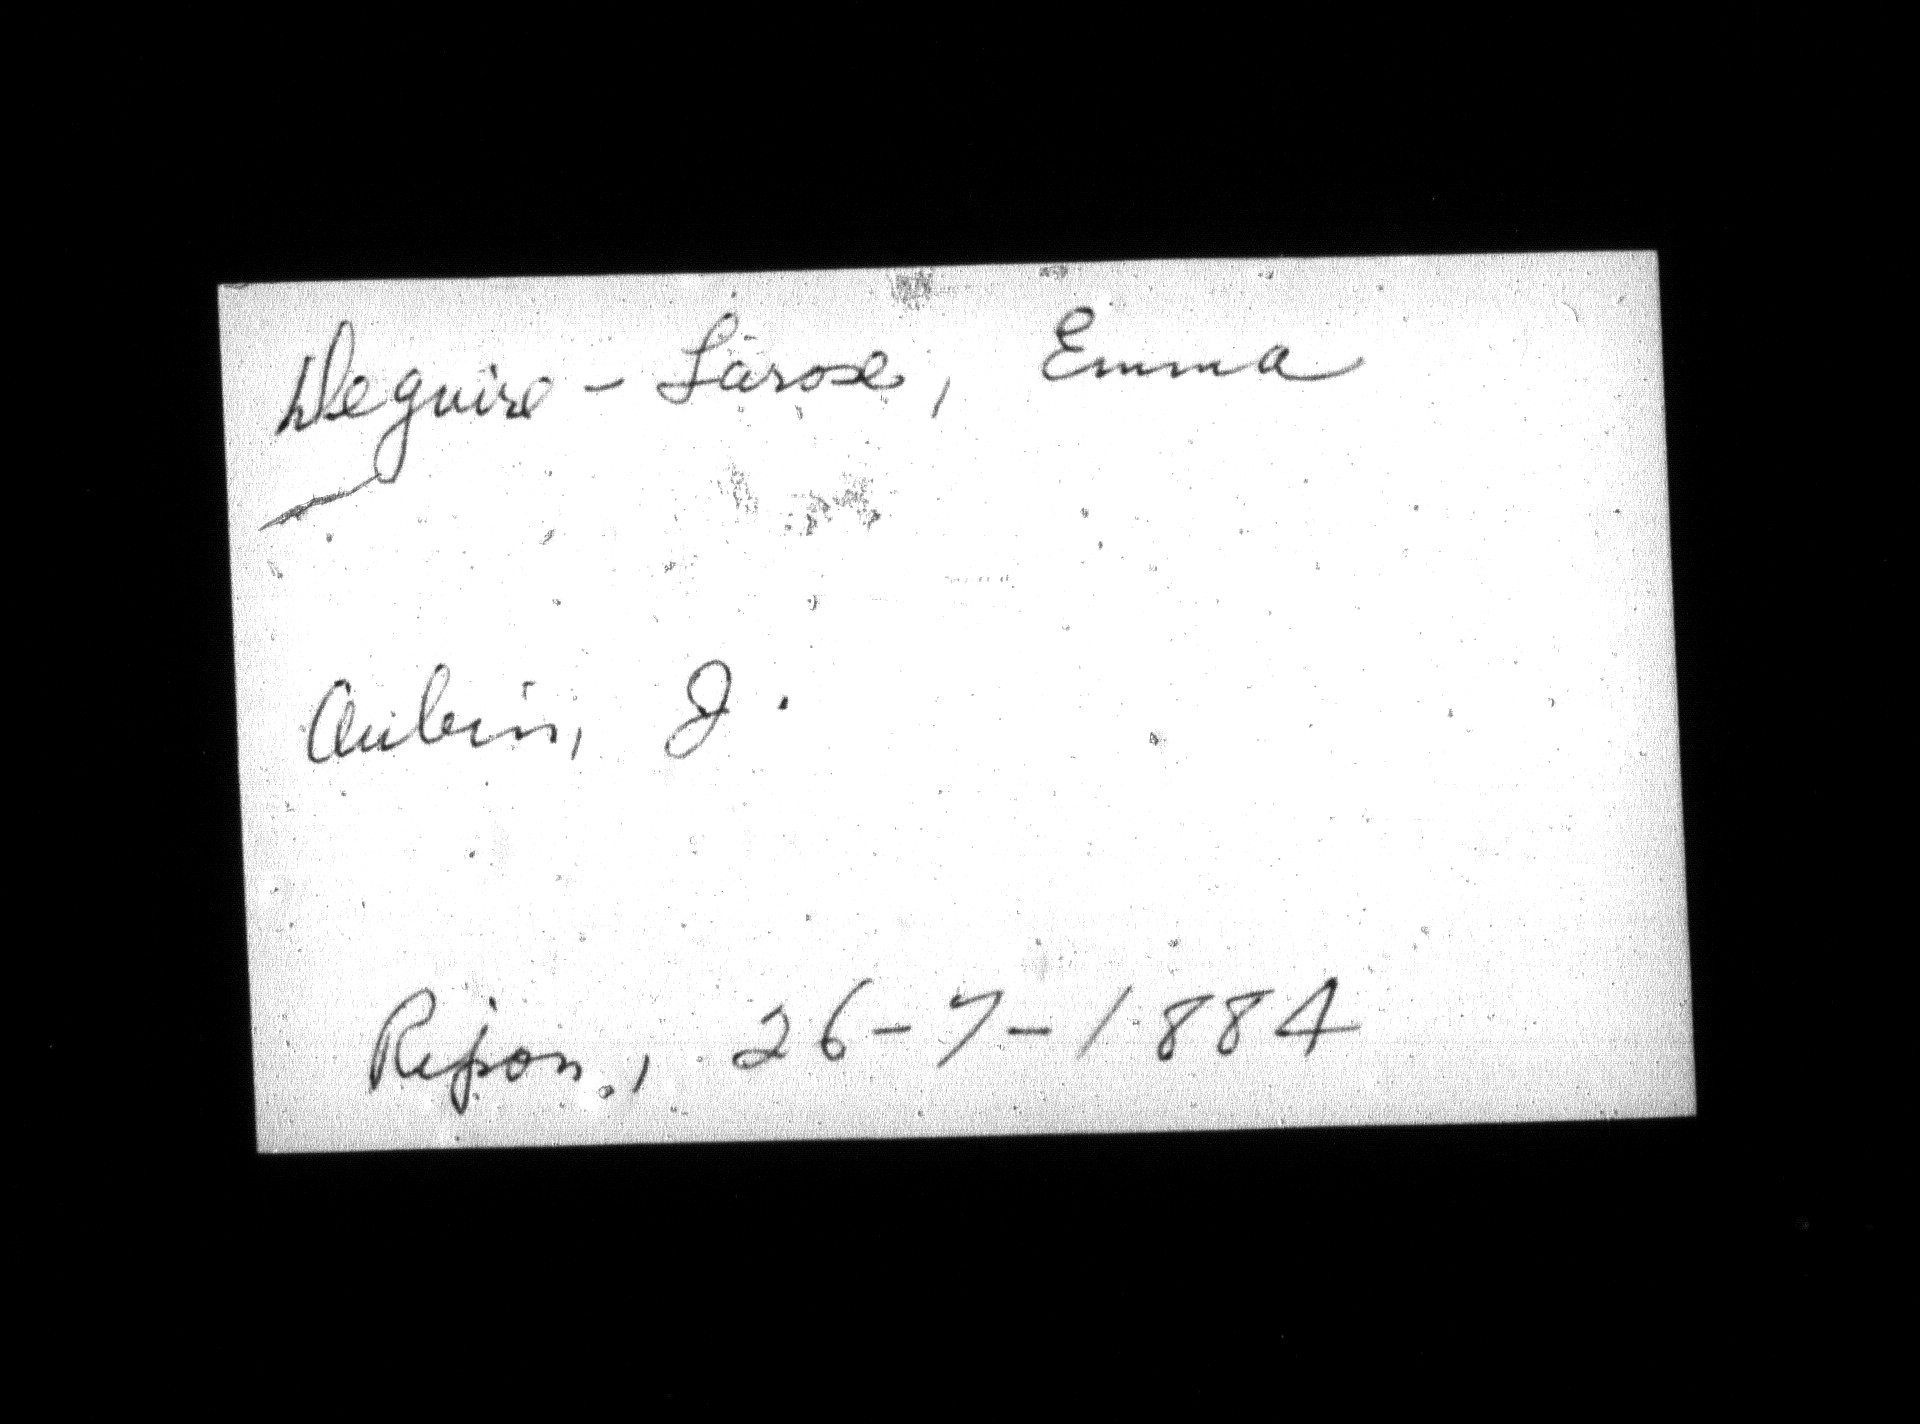 Deguire - Larose, Emma
Aubin, J.
Ripon, 26-7-1884